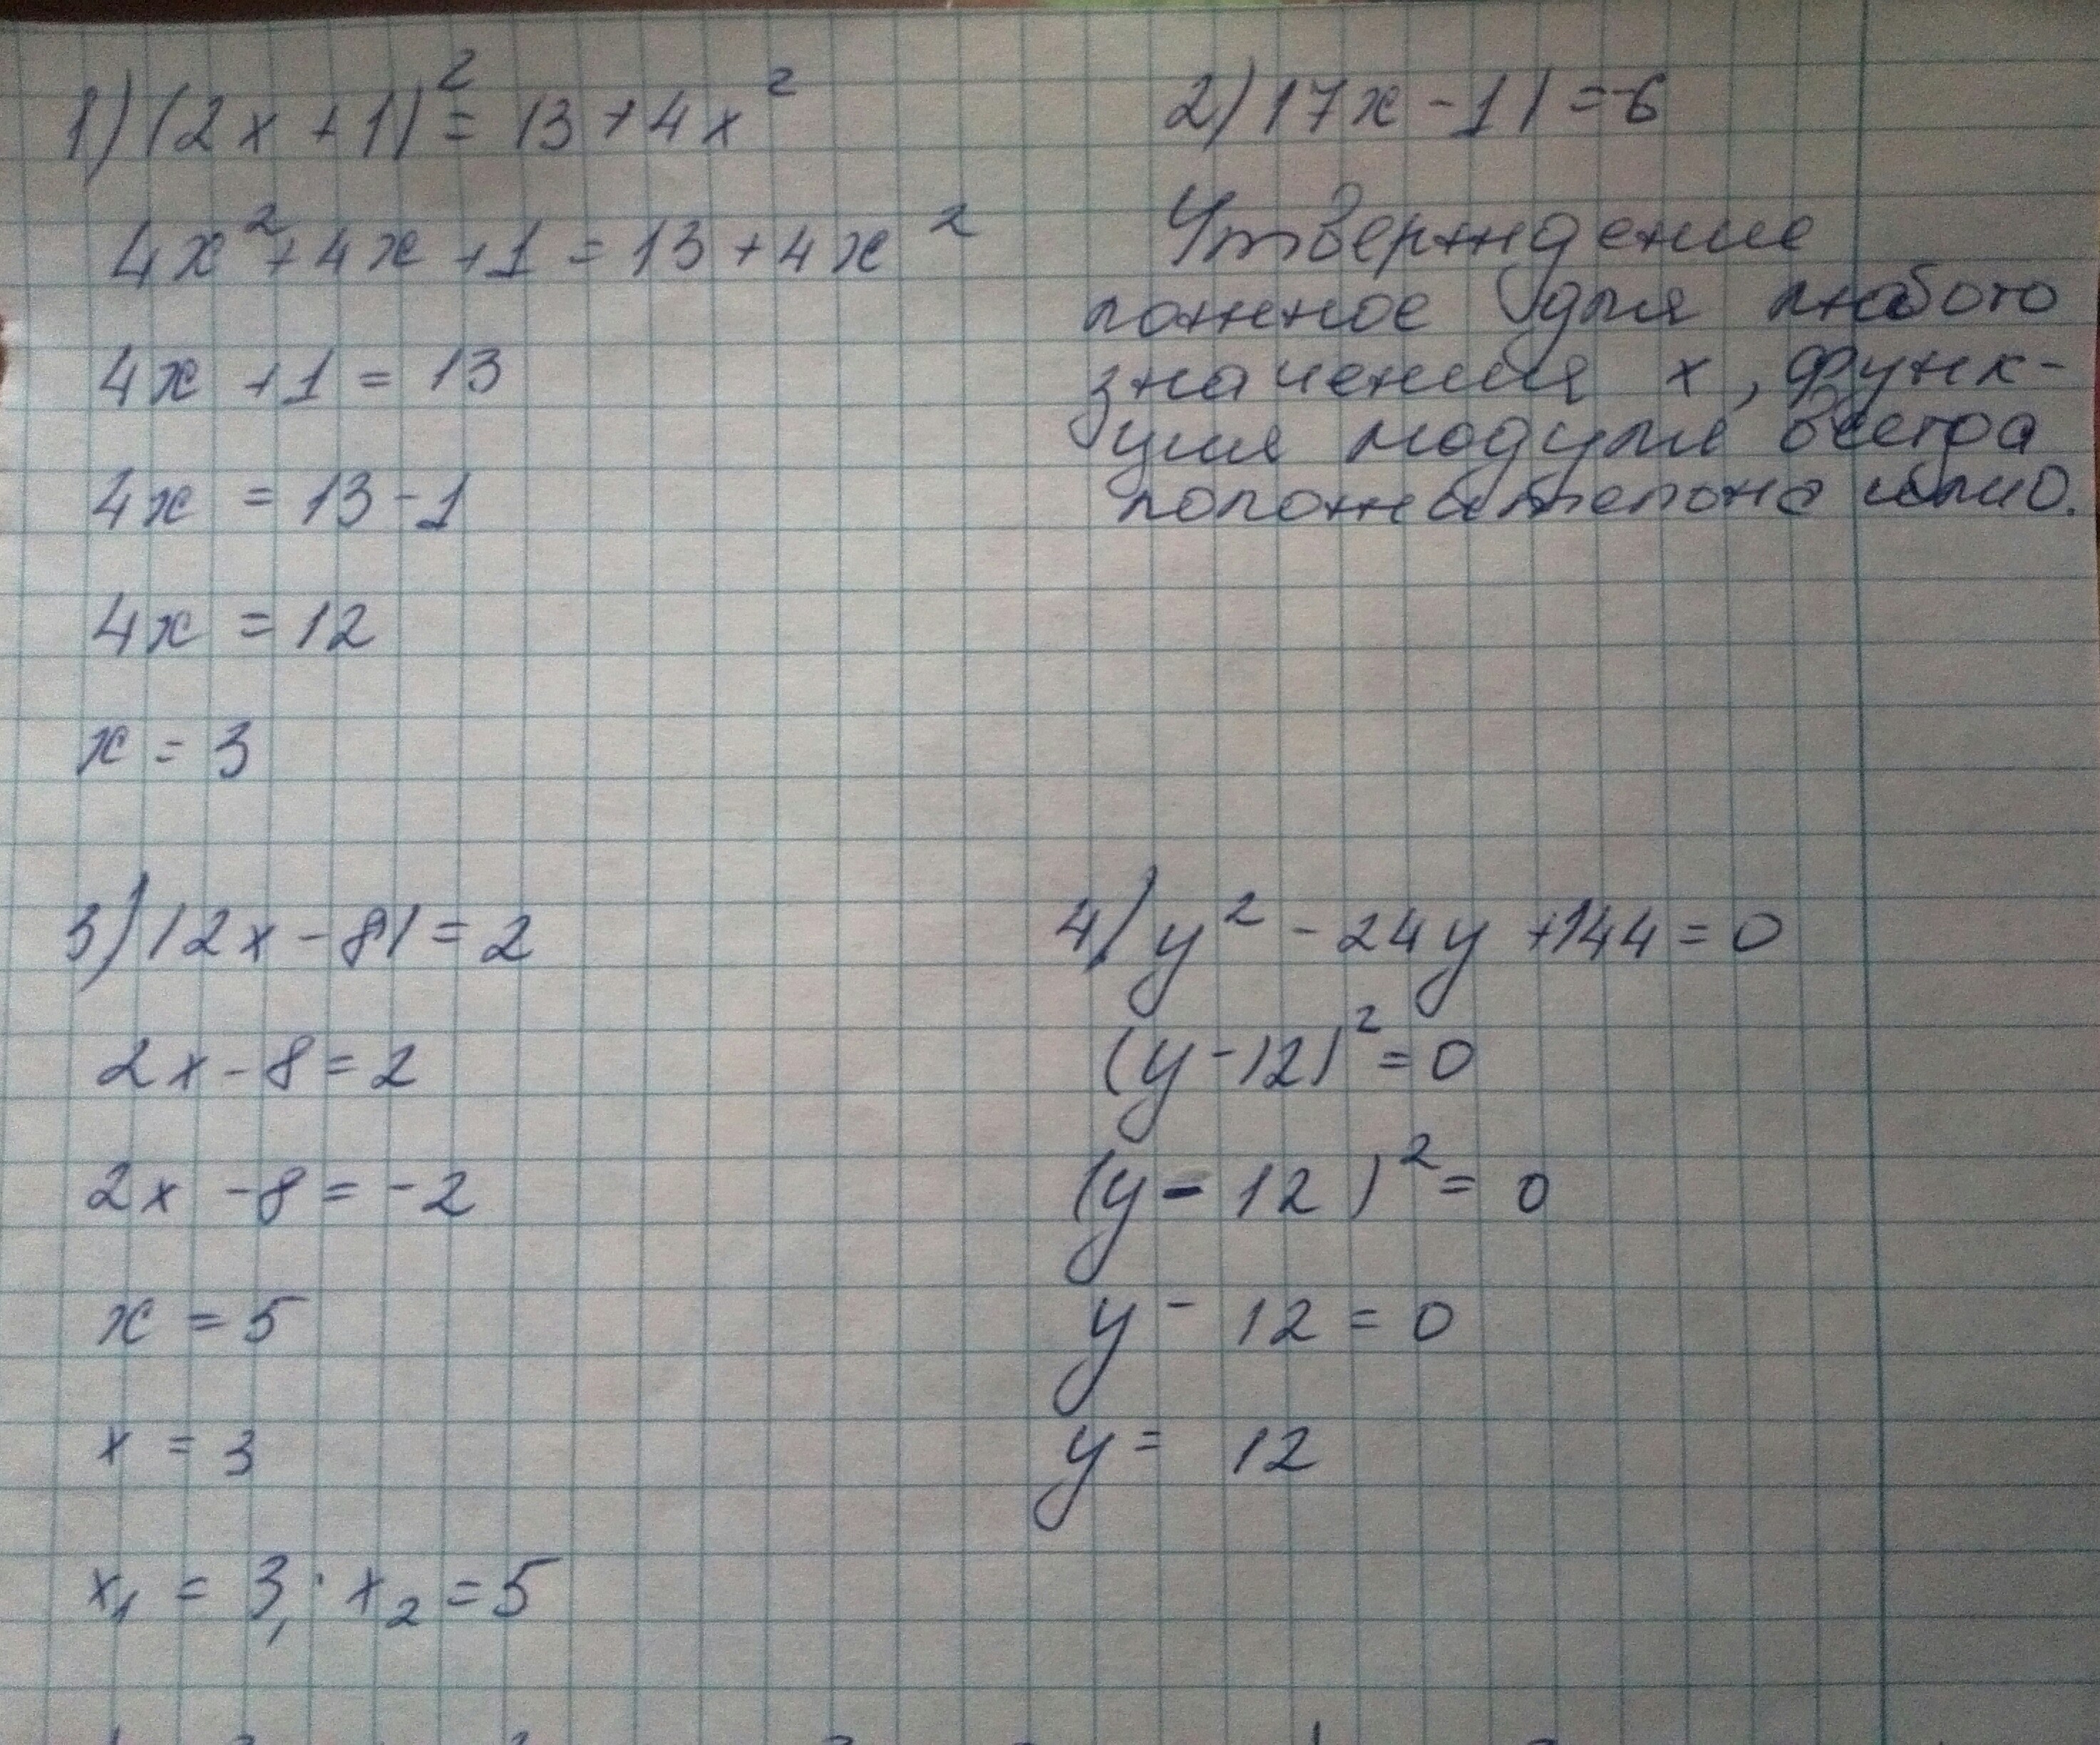 1) (2x + 1)² = 13 + 4x²
4x² + 4x + 1 = 13 + 4x²
4x + 1 = 13
4x = 13 - 1
4x = 12
x = 3
2) |7x - 1| = -6
Утверждение
ложное для любого
значения x, функ-
ция модуля всегда
положительна или 0.
3) |2x - 8| = 2
2x - 8 = 2
2x - 8 = -2
x = 5
x = 3
x₁ = 3; x₂ = 5
4) y² - 24y + 144 = 0
(y - 12)² = 0
(y - 12)² = 0
y - 12 = 0
y = 12